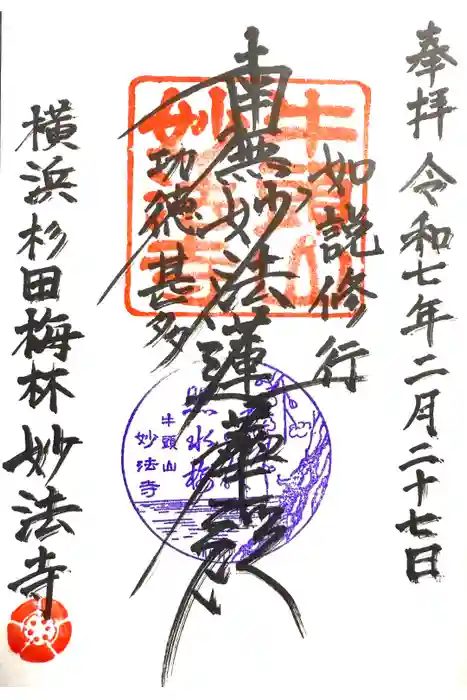 奉拝 令和七年二月二十七日
如説修行
南無妙法蓮華経
功徳甚多
横浜杉田梅林妙法寺
牛頭山
妙法寺
牛頭山
妙法寺